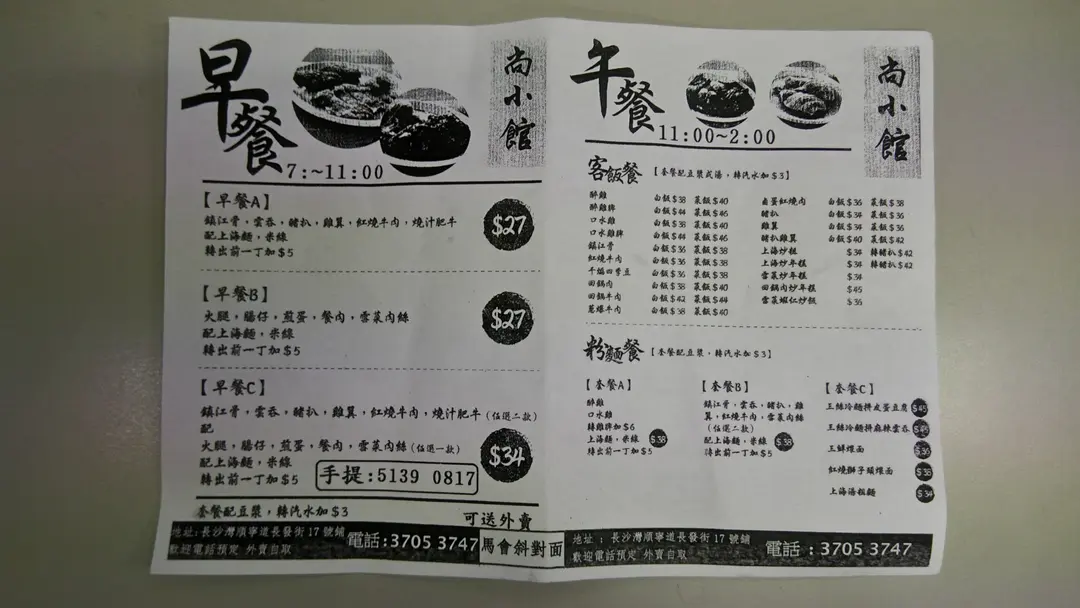 早餐
7:~11:00
尚小館
【早餐A】
鎮江骨，雲吞，豬扒，雞翼，紅燒牛肉，燒汁肥牛
配上海麵，米線
轉出前一丁加$5
$27
【早餐B】
火腿，腸仔，煎蛋，餐肉，雪菜肉絲
配上海麵，米線
轉出前一丁加$5
$27
【早餐C】
鎮江骨，雲吞，豬扒，雞翼，紅燒牛肉，燒汁肥牛(任選二款)
配
火腿，腸仔，煎蛋，餐肉，雪菜肉絲(任選一款)
配上海麵，米線
轉出前一丁加$5
$34
手提:5139 0817
套餐配豆漿，轉汽水加$3
可送外賣
地址:長沙灣順寧道長發街17號鋪
歡迎電話預定 外賣自取
電話:3705 3747
馬會斜對面
午餐
11:00~2:00
尚小館
客飯餐【套餐配豆漿或湯，轉汽水加$3】
醉雞 白飯$38 菜飯$40
醉雞髀 白飯$44 菜飯$46
口水雞 白飯$38 菜飯$40
口水雞髀 白飯$44 菜飯$46
鎮江骨 白飯$36 菜飯$38
紅燒牛肉 白飯$36 菜飯$38
干煸四季豆 白飯$36 菜飯$38
回鍋肉 白飯$38 菜飯$40
回鍋牛肉 白飯$42 菜飯$44
蔥爆牛肉 白飯$38 菜飯$40
鹵蛋紅燒肉 白飯$36 菜飯$38
豬扒 白飯$34 菜飯$36
雞翼 白飯$34 菜飯$36
豬扒雞翼 白飯$40 菜飯$42
上海炒粗 $34 轉豬扒$42
上海炒年糕 $34 轉豬扒$42
雪菜炒年糕 $34
回鍋肉炒年糕 $45
雪菜蝦仁炒粗 $36
粉麵餐【套餐配豆漿，轉汽水加$3】
【套餐A】
醉雞
口水雞
轉雞髀加$6
上海麵，米線
轉出前一丁$5
$38
【套餐B】
鎮江骨，雲吞，豬扒，雞
翼，紅燒牛肉，雪菜肉絲
(任選二款)
配上海麵，米線
轉出前一丁加$5
$38
【套餐C】
三絲冷麵拼皮蛋豆腐 $45
三絲冷麵拼麻辣雲吞 $45
三鮮煨面 $36
紅燒獅子頭煨面 $38
上海湯粗麵 $34
地址：長沙灣順寧道長發街17號鋪
歡迎電話預定 外賣自取
電話：3705 3747